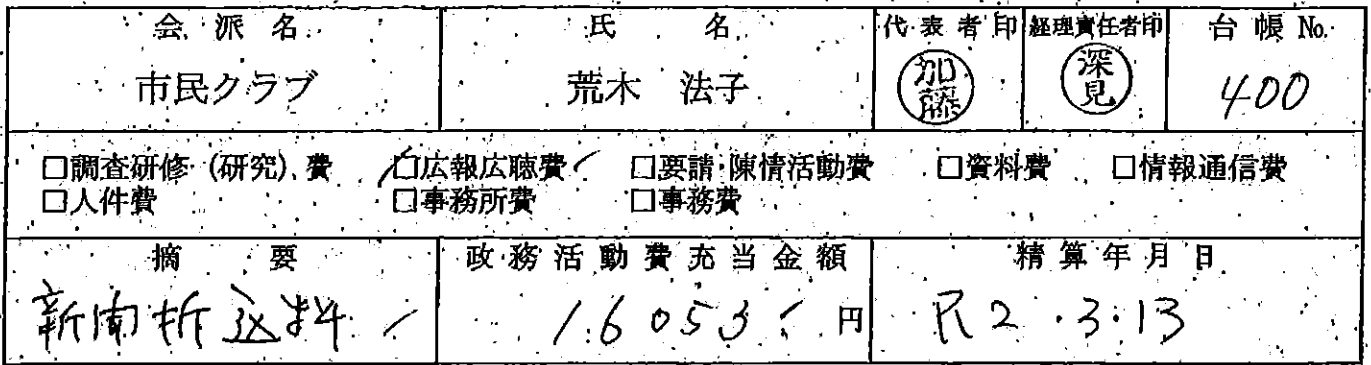 会派名 氏名 代表者印 経理責任者印 台帳No.
市民クラブ 荒木 法子 加藤 深見 400
□調査研修(研究)費 □広報広聴費 □要請・陳情活動費 □資料費 □情報通信費
□人件費 □事務所費 □事務費
摘要 政務活動費充当金額 精算年月日
新聞折込料 16053円 R2.3.13